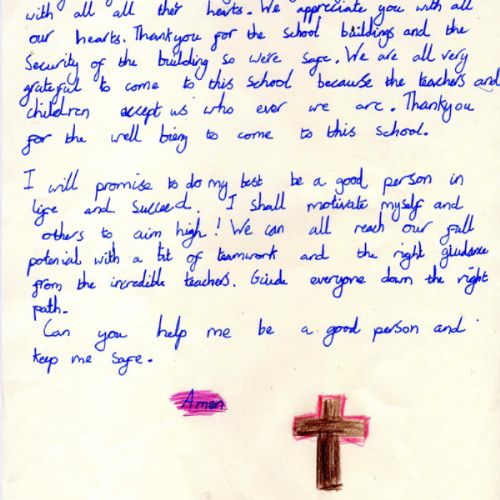 with all all ther hearts. We appreciate you with all
our hearts. Thankyou for the school buildings and the
Security of the building so we're safe. We are all very
grateful to come to this school because the teachers and
children accept us who ever we are. Thankyou
for the well bieng to come to this school.
I will promise to do my best be a good person in
life and Succeed. I shall motivate myself and
others to aim high! We can all reach our full
potenial with a bit of teamwork and the right giudance
from the incredible teachers. Giude everyone down the right
path.
Can you help me be a good person and
keep me safe.
Amen